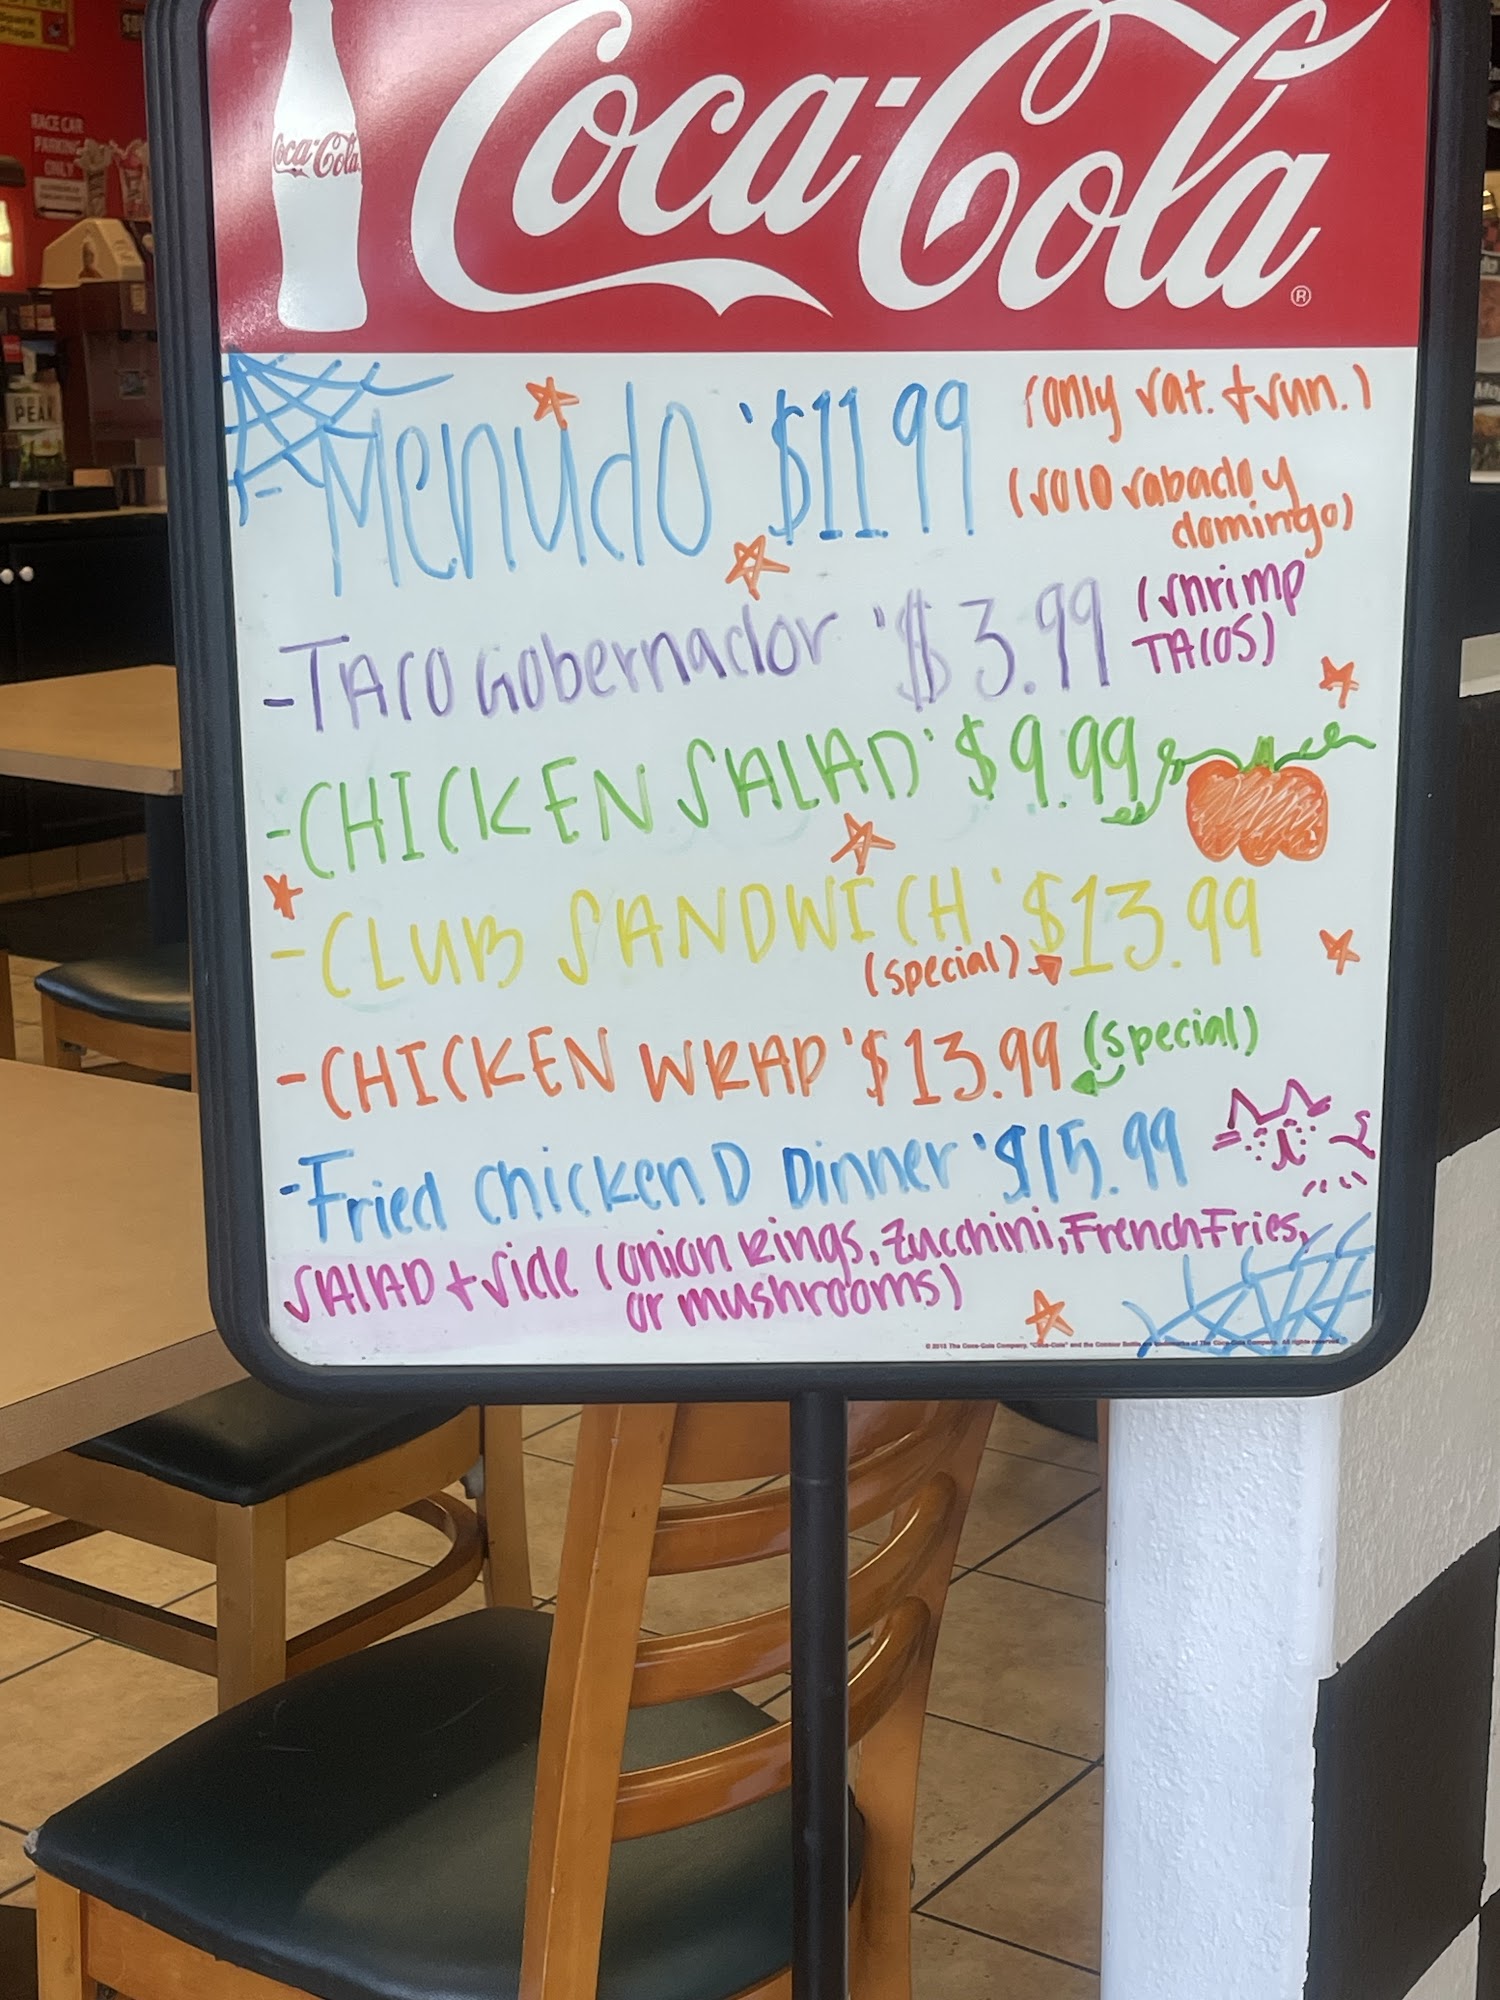 Spark
Plugs
RACE CAR
PARKING
ONLY
PEAK
Coca-Cola
Coca-Cola®
-Menudo $11.99 (only sat. + sun.)
(solo sabado y
domingo)
-TACO Gobernador $3.99 (shrimp
TACOS)
-CHICKEN SALAD $9.99
-CLUB SANDWICH $13.99
(special)
-CHICKEN WRAP $13.99 (special)
-Fried chicken D Dinner $15.99
SALAD + side (onion Rings, Zucchini, French Fries,
or mushrooms)